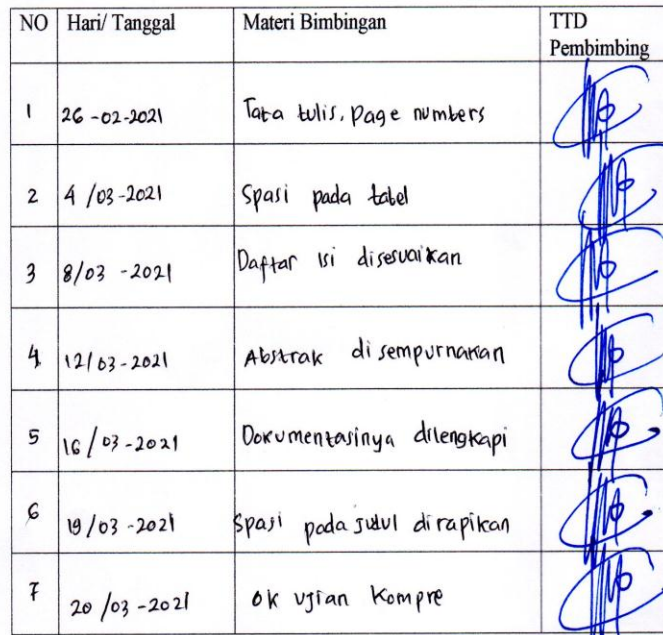 NO Hari/ Tanggal Materi Bimbingan TTD
Pembimbing
1 26-02-2021 Tata tulis, page numbers
2 4/03-2021 Spasi pada tabel
3 8/03-2021 Daftar isi disesuaikan
4 12/03-2021 Abstrak disempurnakan
5 16/03-2021 Dokumentasinya dilengkapi
6 19/03-2021 Spasi pada judul dirapikan
7 20/03-2021 ok ujian Kompre